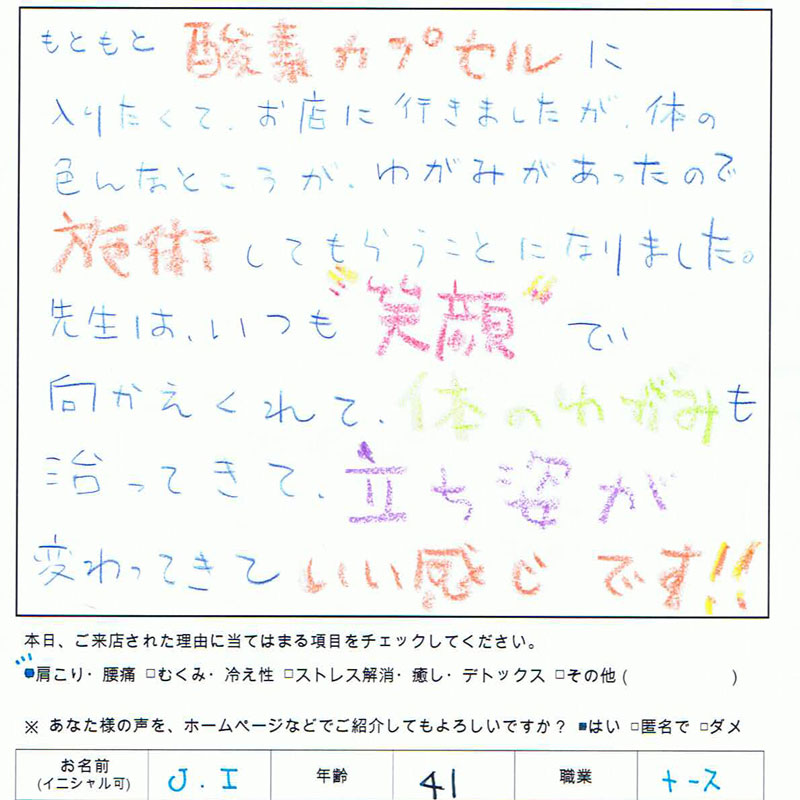 もともと 酸素カプセル に
入りたくて、お店に行きましたが、体の
色んなところうが、わがみがあったので
施術 してもらうことになりました。
先生は、いつも "笑顔" で
向かえくれて、体のわがみも
治ってきて、立ち姿が
変わってきて いい感じです!!
本日、ご来店された理由に当てはまる項目をチェックしてください。
■肩こり・腰痛 □むくみ・冷え性 □ストレス解消・癒し・デトックス □その他 ( )
※ あなた様の声を、ホームページなどでご紹介してもよろしいですか? ■はい □匿名で □ダメ
お名前 (イニシャル可) J.I 年齢 41 職業 ナース